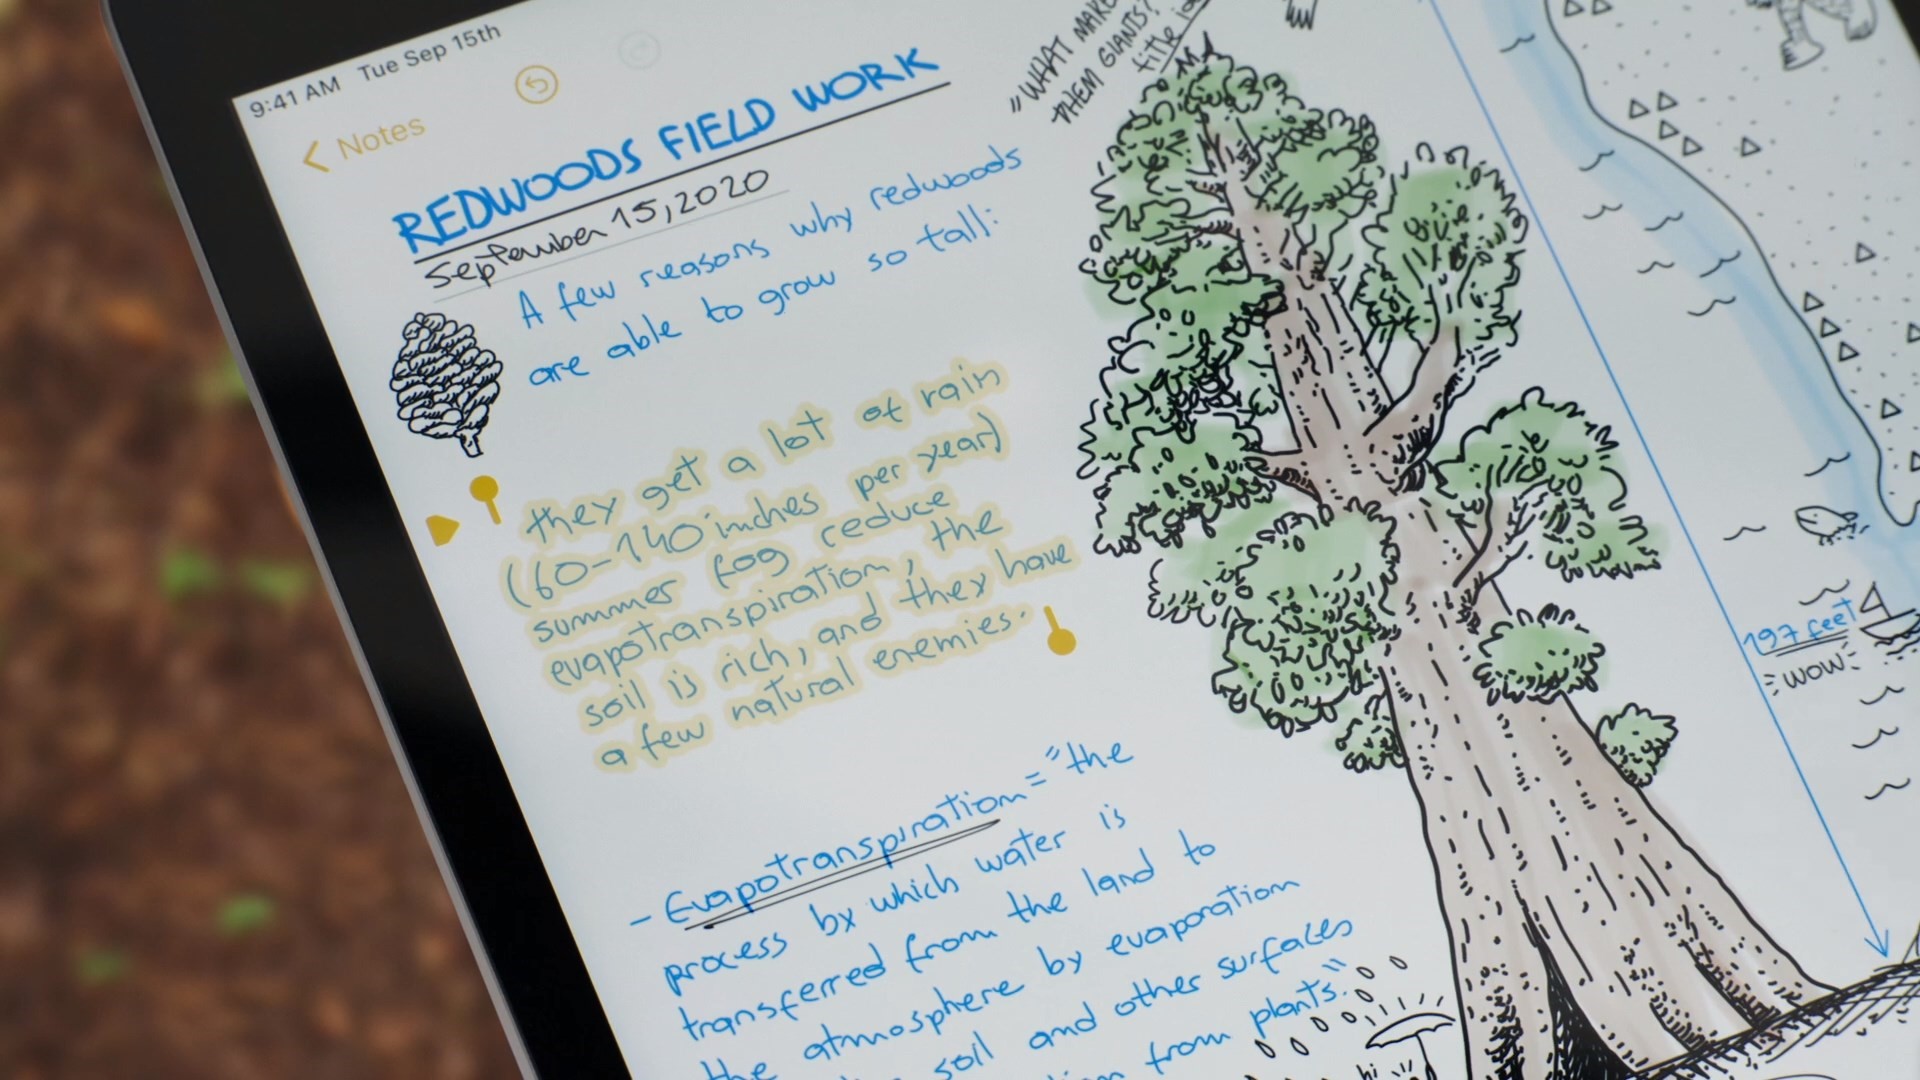 9:41 AM Tue Sep 15th
Notes
REDWOODS FIELD WORK
September 15, 2020
A few reasons why redwoods
are able to grow so tall:
they get a lot of rain
(60-140 inches per year)
summer fog reduce
evapotranspiration, the
soil is rich, and they have
a few natural enemies.
- Evapotranspiration = "the
process by which water is
transferred from the land to
the atmosphere by evaporation
soil and other surfaces
from plants."
"WHAT MAKE
THEM GIANTS?
title
197 feet
WOW
hi